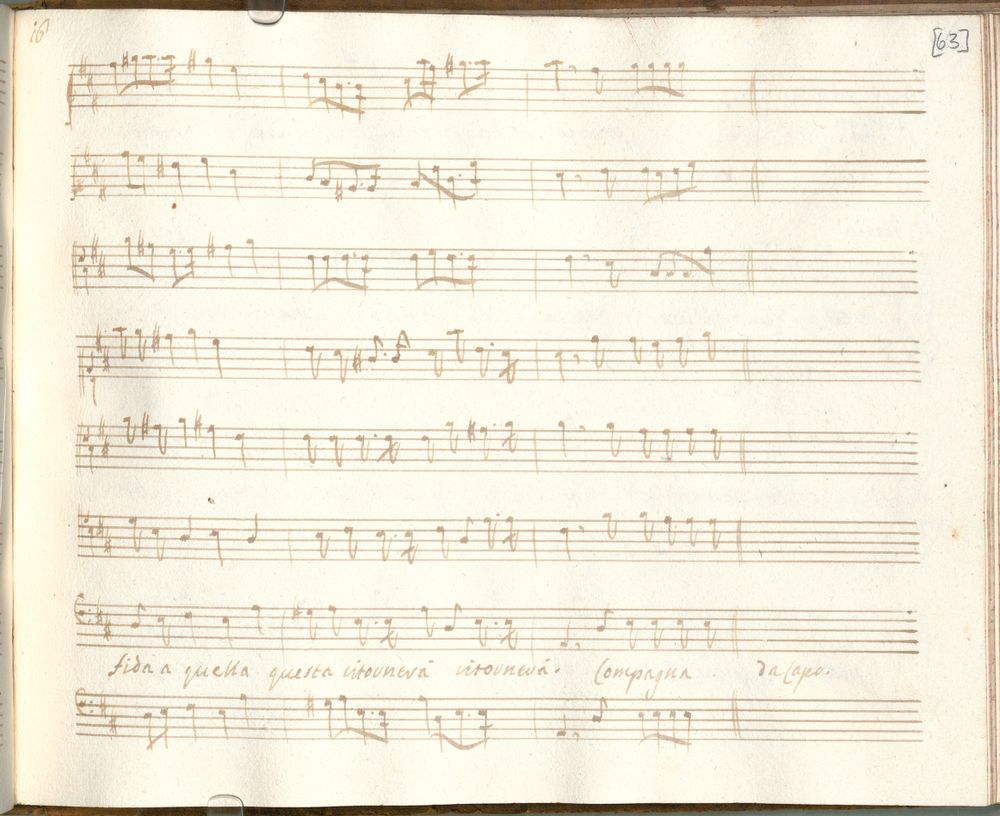 [63]
fida a quella questa ritornerá ritornerá. Compagna da Capo.